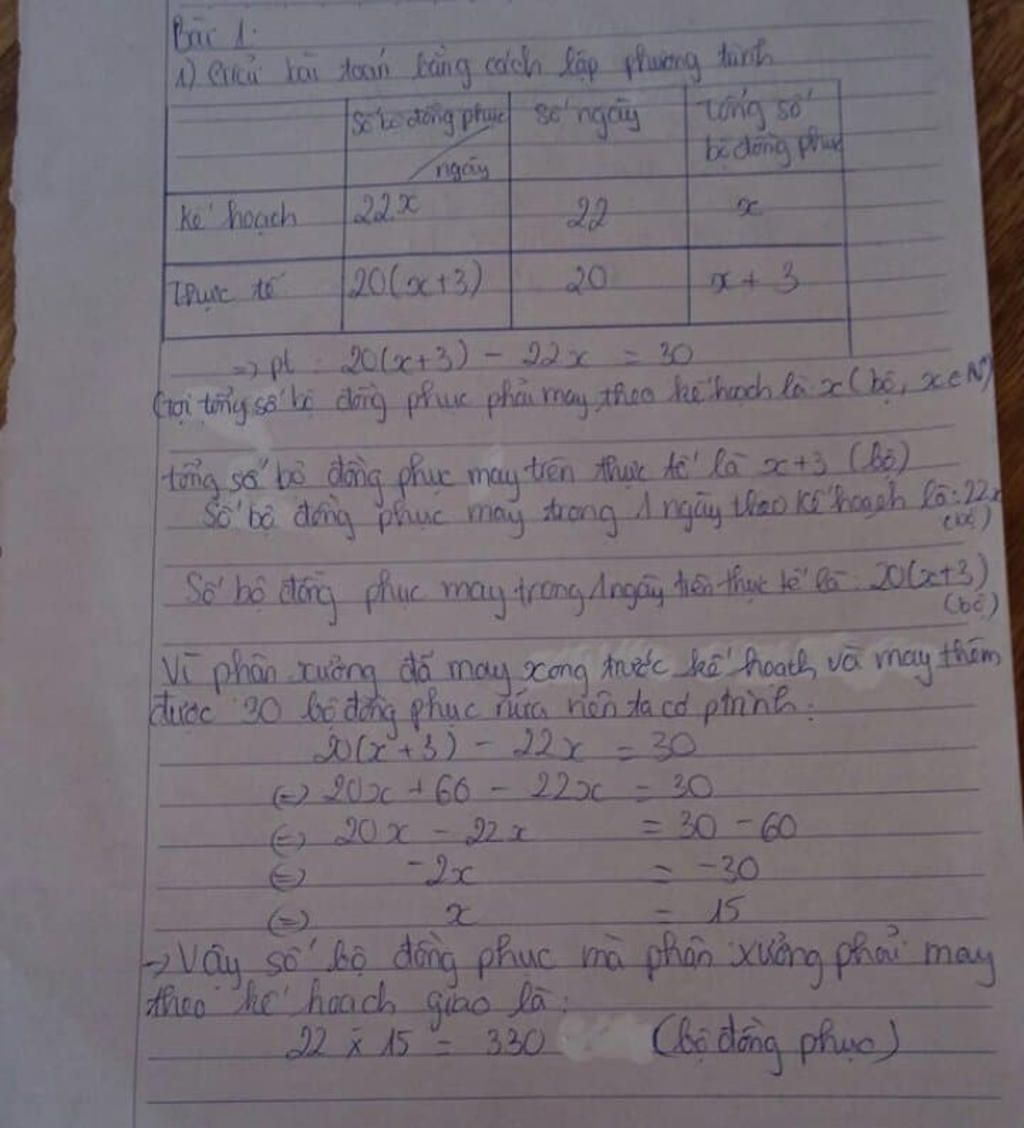 Bài 1:
1) Giải bài toán bằng cách lập phương trình
Số bộ đồng phục/ngày Số ngày Tổng số bộ đồng phục
Kế hoạch 22x 22 x
Thực tế 20(x+3) 20 x + 3
=> pt : 20(x+3) - 22x = 30
Gọi tổng số bộ đồng phục phải may theo kế hoạch là x (bộ, x∈N*)
tổng số bộ đồng phục may trên thực tế là x+3 (bộ)
Số bộ đồng phục may trong 1 ngày theo kế hoạch là: 22x (bộ)
Số bộ đồng phục may trong 1 ngày trên thực tế là: 20(x+3) (bộ)
Vì phân xưởng đã may xong trước kế hoạch và may thêm
được 30 bộ đồng phục nữa nên ta có ptrình:
20(x+3) - 22x = 30
(=) 20x + 60 - 22x = 30
(=) 20x - 22x = 30 - 60
(=) -2x = -30
(=) x = 15
-> Vậy số bộ đồng phục mà phân xưởng phải may
theo kế hoạch giao là:
22 x 15 = 330 (bộ đồng phục)